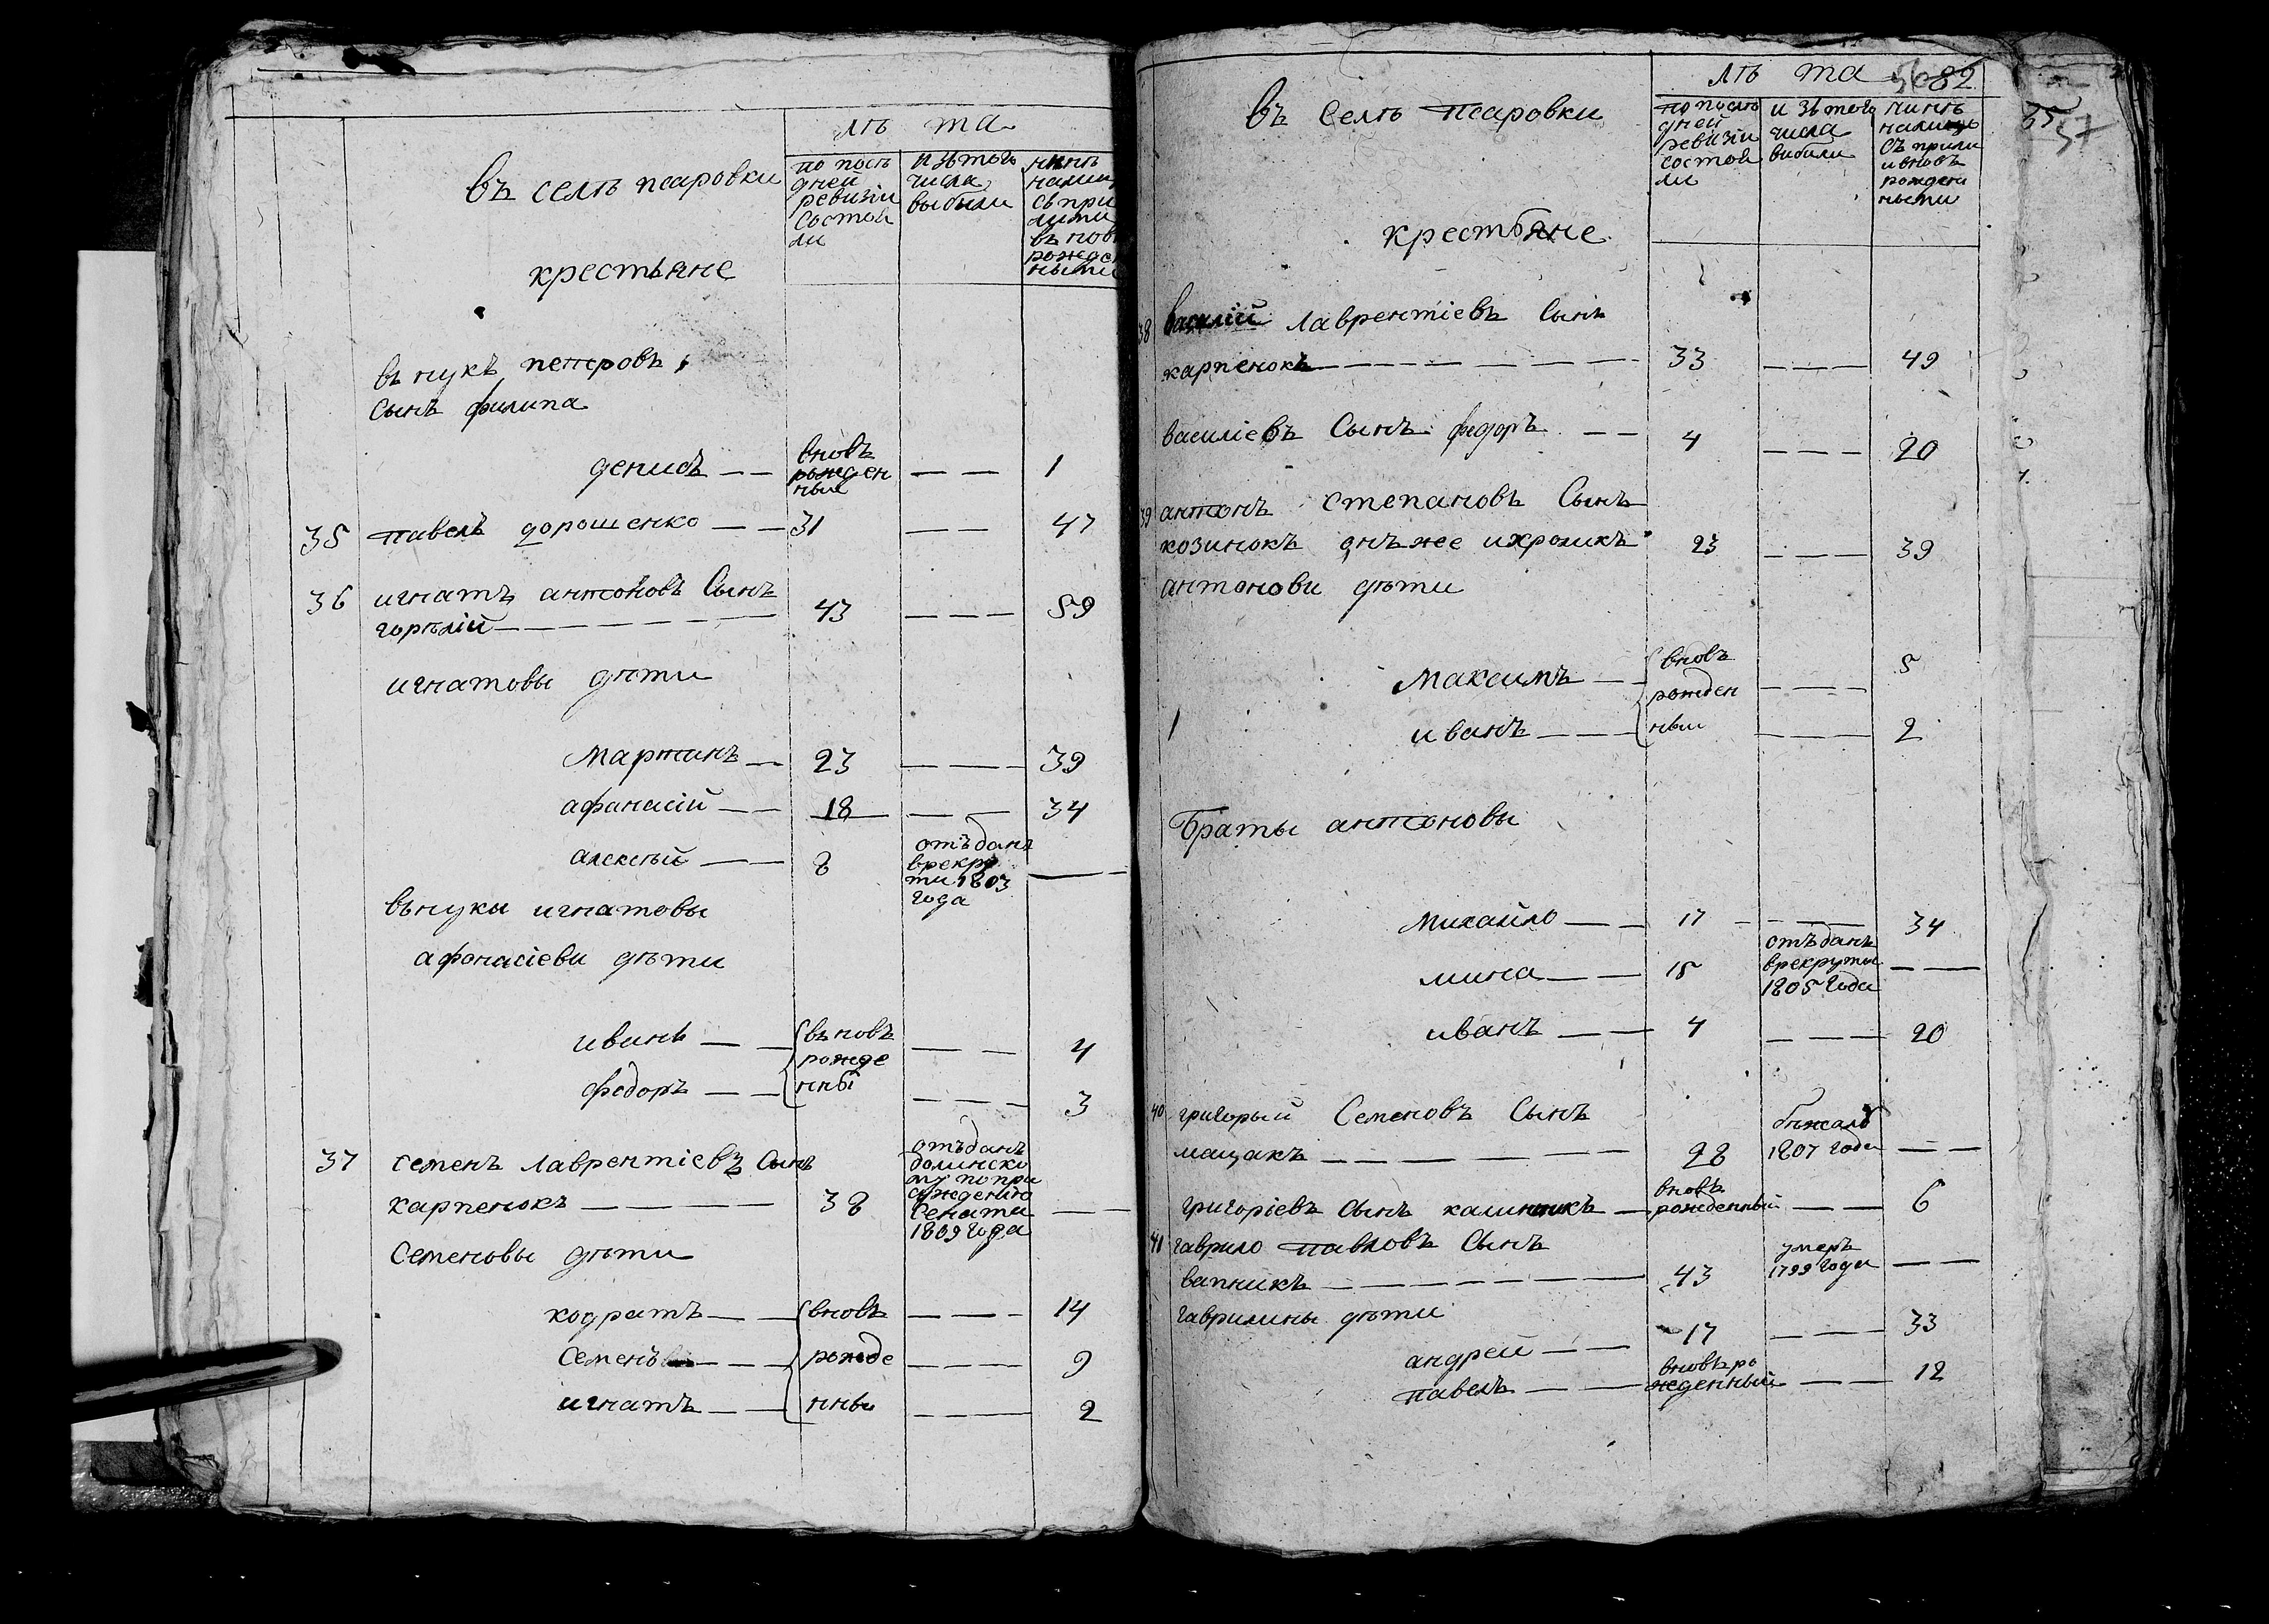 лѣ та
въ селѣ псаровки
по послѣ
дней
ревизіи
состоя
ли
изтого
числа
выбыли
нынѣ
налиц
съ при
лити
въ нов
рожден
ными
крестьяне
внукъ петровъ
сынъ филипа
денисъ — — вновь рожден ные — — 1
35 павелъ дорошенко — — 31 — — 47
36 игнатъ антоновъ сынъ
горѣлій — — — 43 — — — 59
игнатовы дѣти
мартинъ — 23 — — — 39
афанасій — — 18 — — — 34
алексѣй — — 8 отъданъ врекру ти 1803 года —
внуки игнатовы
афонасіеви дѣти
иванъ — — въновь — — — 4
рожде
федоръ — — нны — — — 3
37 семенъ лаврентіевъ сынъ
карпенокъ — — — 38 отъданъ долинско му попри сужденію сената 1809 года — —
семеновы дѣти
кодратъ — — вновь — — — 14
семенъ — — рожде — — — 9
игнатъ — — нны — — — 2
лѣ та 82
въ селѣ псаровки
по послѣ
дней
ревизіи
состоя
ли
изтого
числа
вибили
нинѣ
налицо
съ прили
ивновь
рожден
ными
35
37
крестьяне
38 василій лаврентіевъ сынъ
карпенокъ — — — 33 — — — 49
василіевъ сынъ федоръ — — 4 — — — 20
39 антонъ степановъ сынъ
козинокъ онъже икроликъ 23 — — — 39
антонови дѣти
максимъ — — вновь рожден — — — 5
иванъ — — — ные — — — 2
браты антоновы
михайло — — 17 — — — 34
мина — — 15 отъданъ врекруты 1805 года — —
иванъ — — 4 — — — 20
40 григорый семеновъ сынъ
мащакъ — — — 28 бѣжалъ 1807 года — —
григоріевъ сынъ калинникъ — вновь рожденный — — 6
41 гаврило павловъ сынъ
вапникъ — — — 43 умеръ 1799 года — —
гаврилины дѣти
андрей — — 17 — — — 33
павелъ — — вновьро жденный — — 12